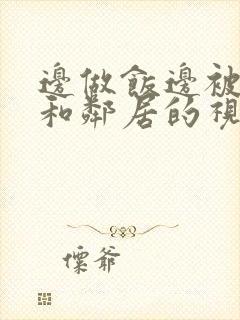 邊做飯邊被
和鄰居的視
傑爺